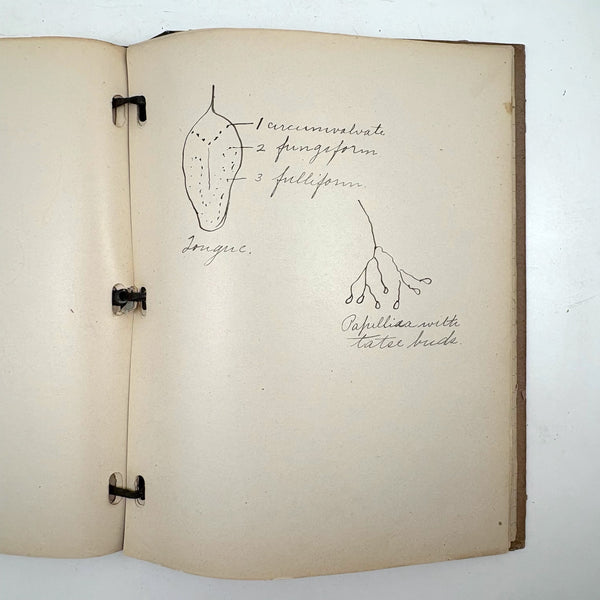 1 circumvalvate
2 fungsform
3 fulliform
Tongue.
Papillia with
tatse buds.